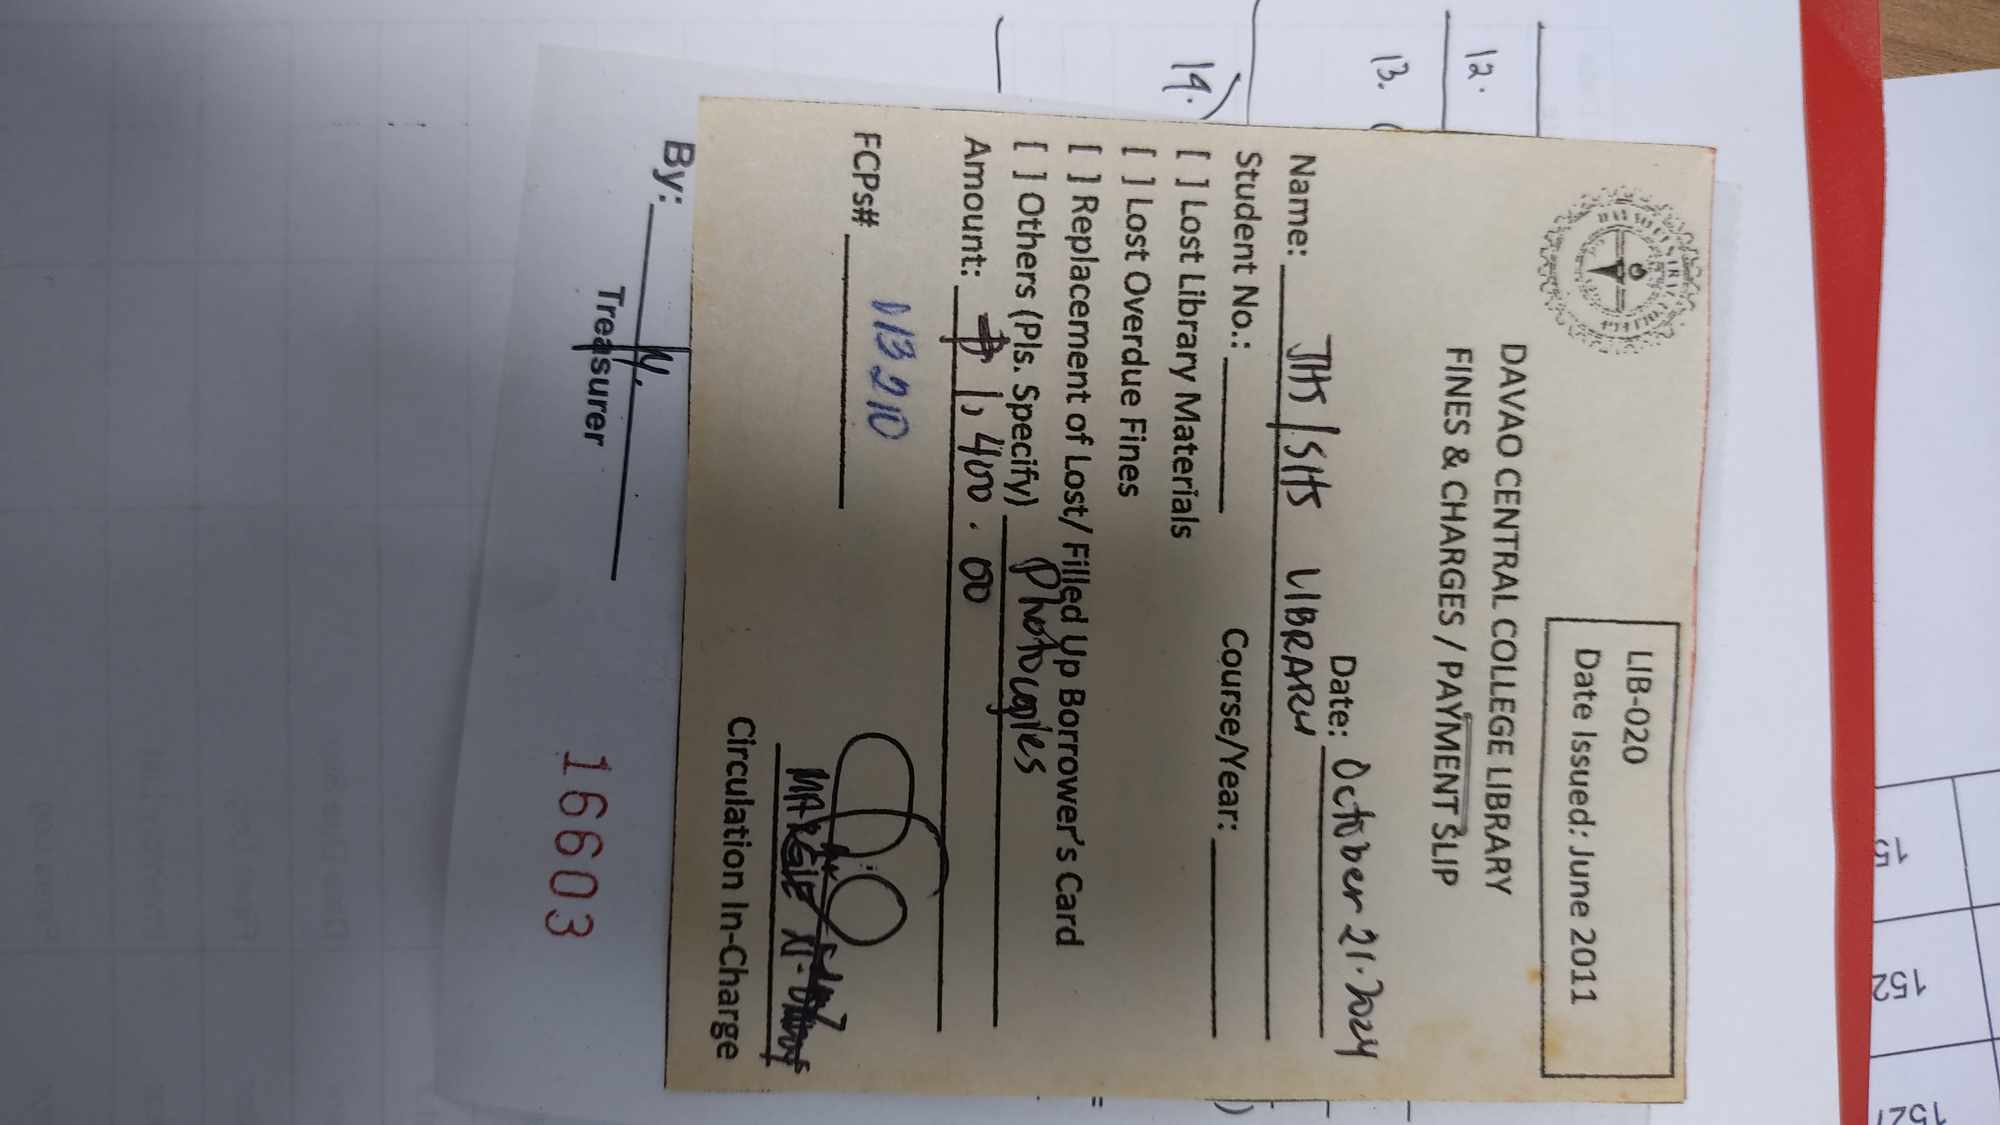 LIB-020
Date Issued: June 2011
DAVAO CENTRAL COLLEGE LIBRARY
FINES & CHARGES / PAYMENT SLIP
Date: October 21. 2024
Name: JHS/SHS LIBRARY
Student No.: Course/Year:
[ ] Lost Library Materials
[ ] Lost Overdue Fines
[ ] Replacement of Lost/ Filled Up Borrower's Card
[ ] Others (Pls. Specify) Photocopies
Amount: ₱ 1,400.00
FCPs# 113210
MARGIE
Circulation In-Charge
By:
Treasurer
16603
12.
13.
14.
15
152
152